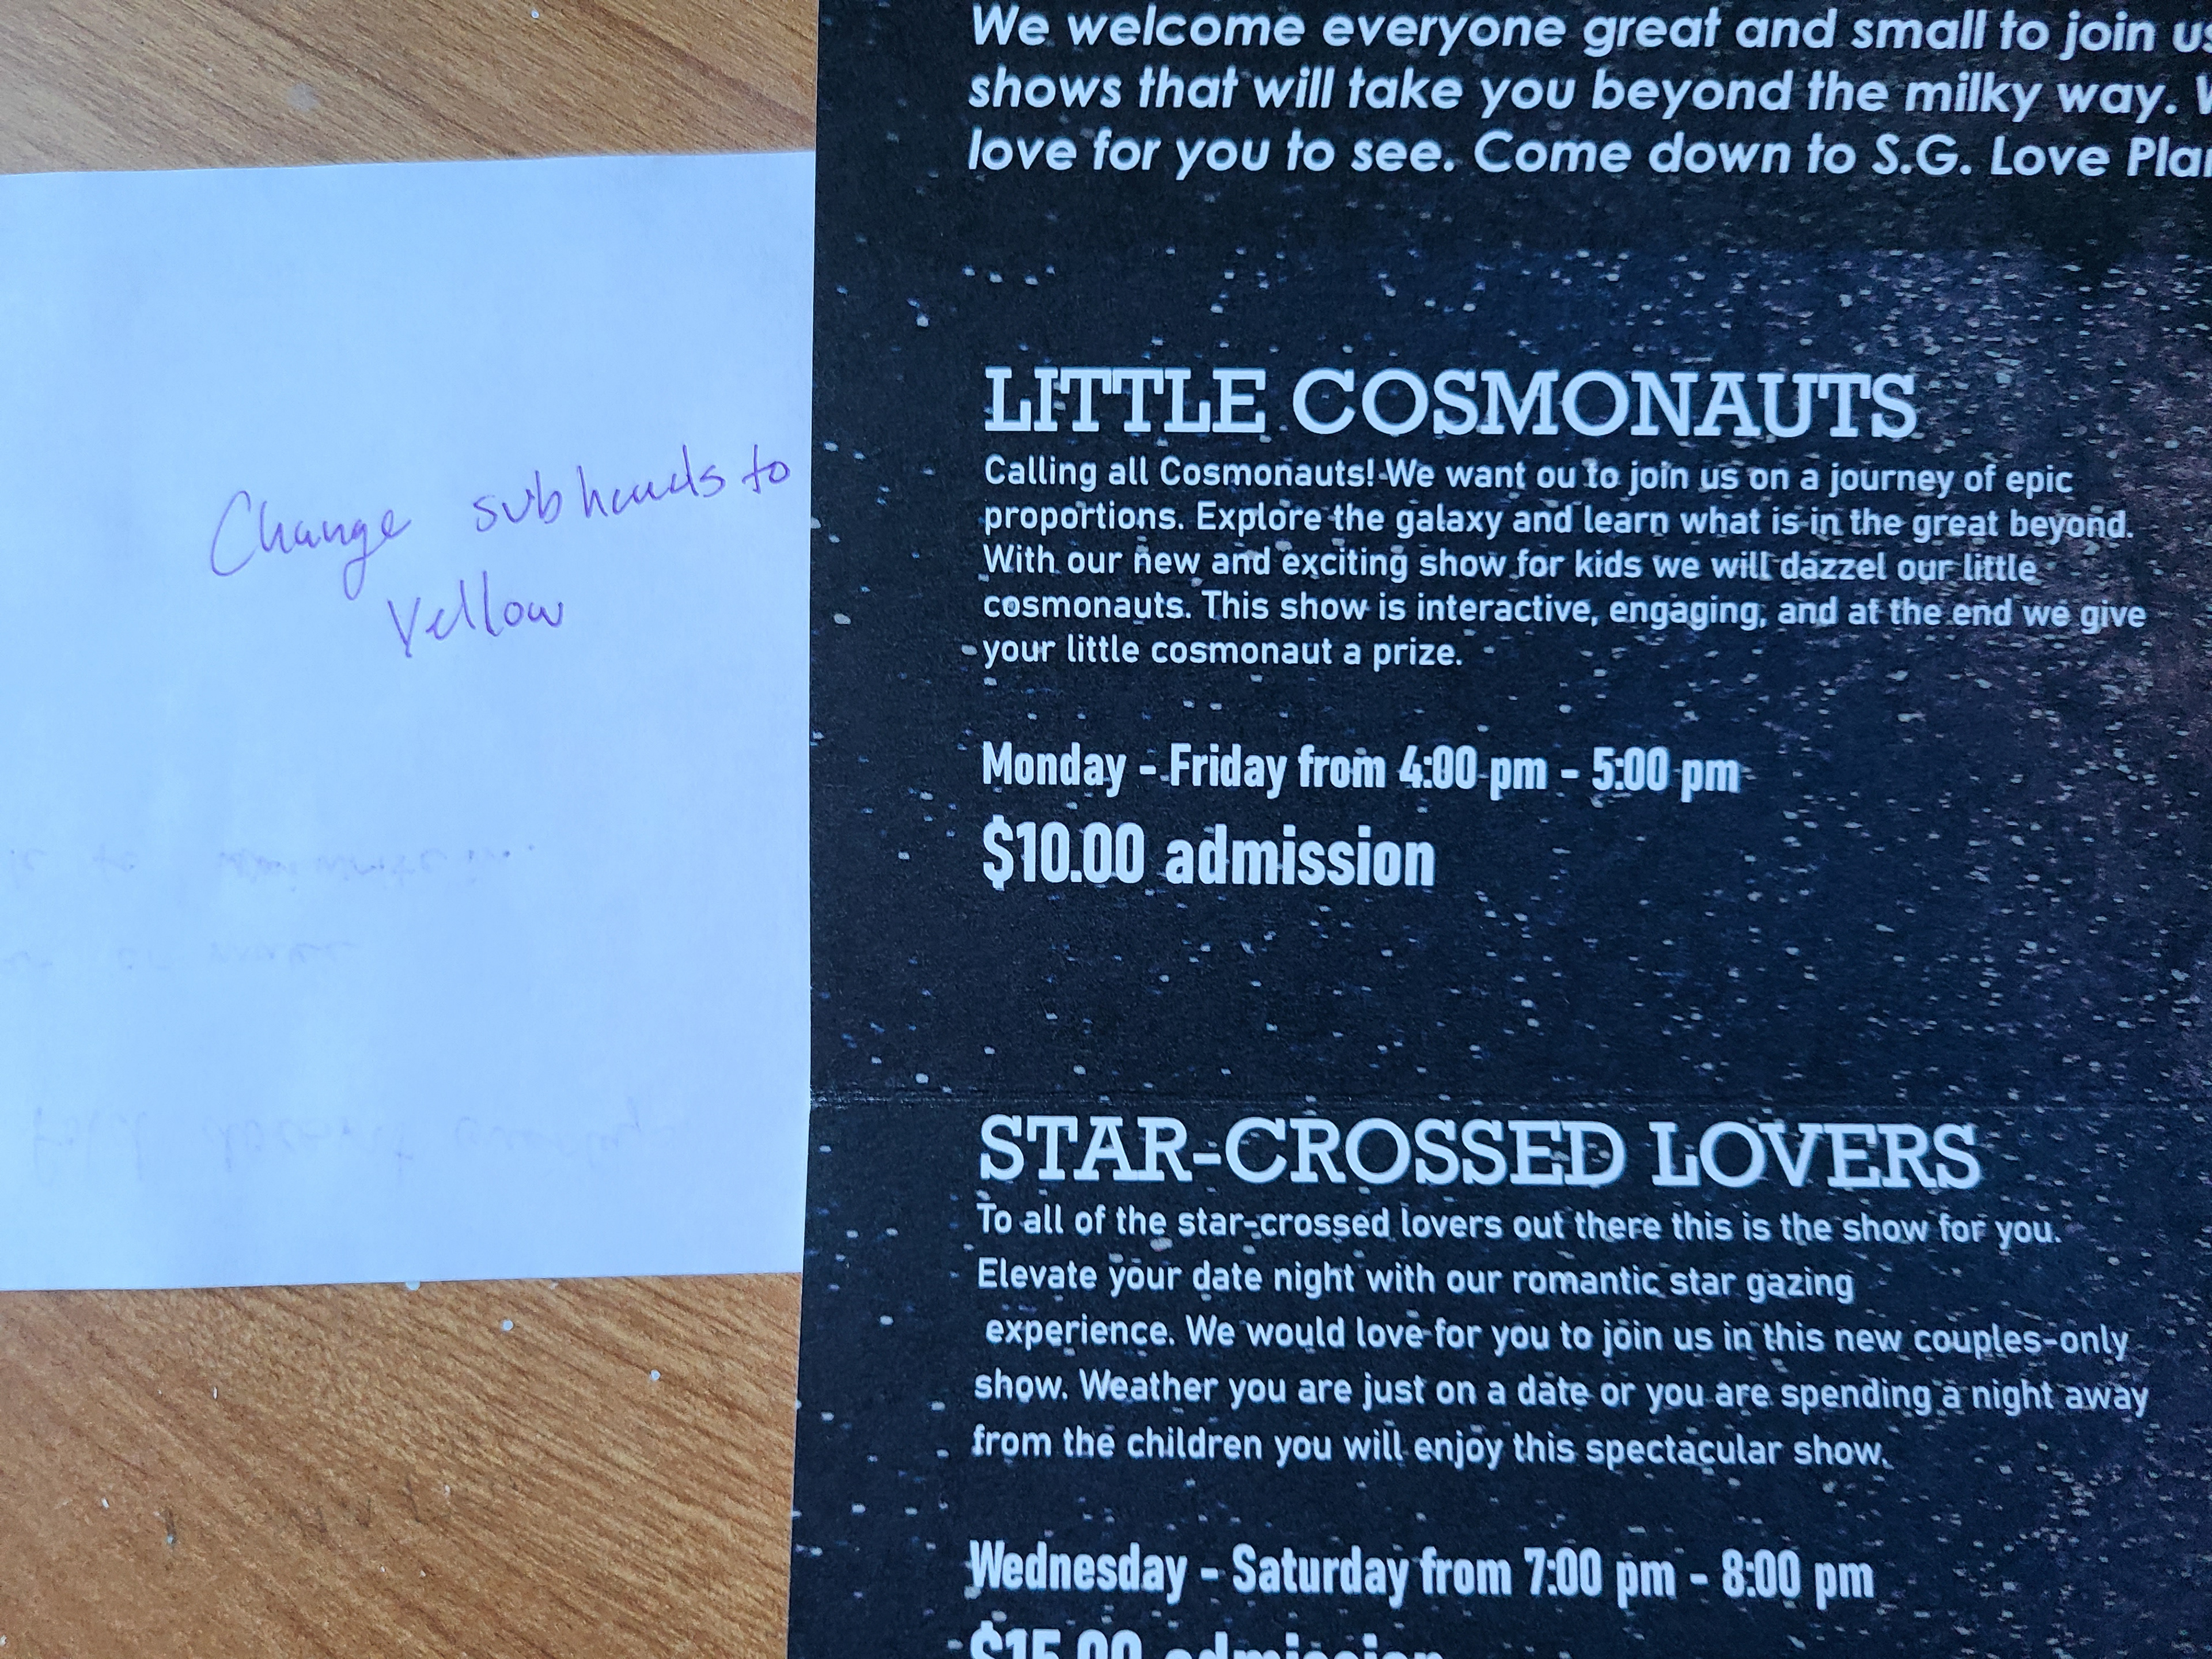 We welcome everyone great and small to join us
shows that will take you beyond the milky way.
love for you to see. Come down to S.G. Love
Change subheads to
Yellow
LITTLE COSMONAUTS
Calling all Cosmonauts! We want ou to join us on a journey of epic
proportions. Explore the galaxy and learn what is in the great beyond.
With our new and exciting show for kids we will dazzel our little
cosmonauts. This show is interactive, engaging, and at the end we give
your little cosmonaut a prize.
Monday - Friday from 4:00 pm - 5:00 pm
$10.00 admission
STAR-CROSSED LOVERS
To all of the star-crossed lovers out there this is the show for you.
Elevate your date night with our romantic star gazing
experience. We would love for you to join us in this new couples-only
show. Weather you are just on a date or you are spending a night away
from the children you will enjoy this spectacular show.
Wednesday - Saturday from 7:00 pm - 8:00 pm
$15.00 admission